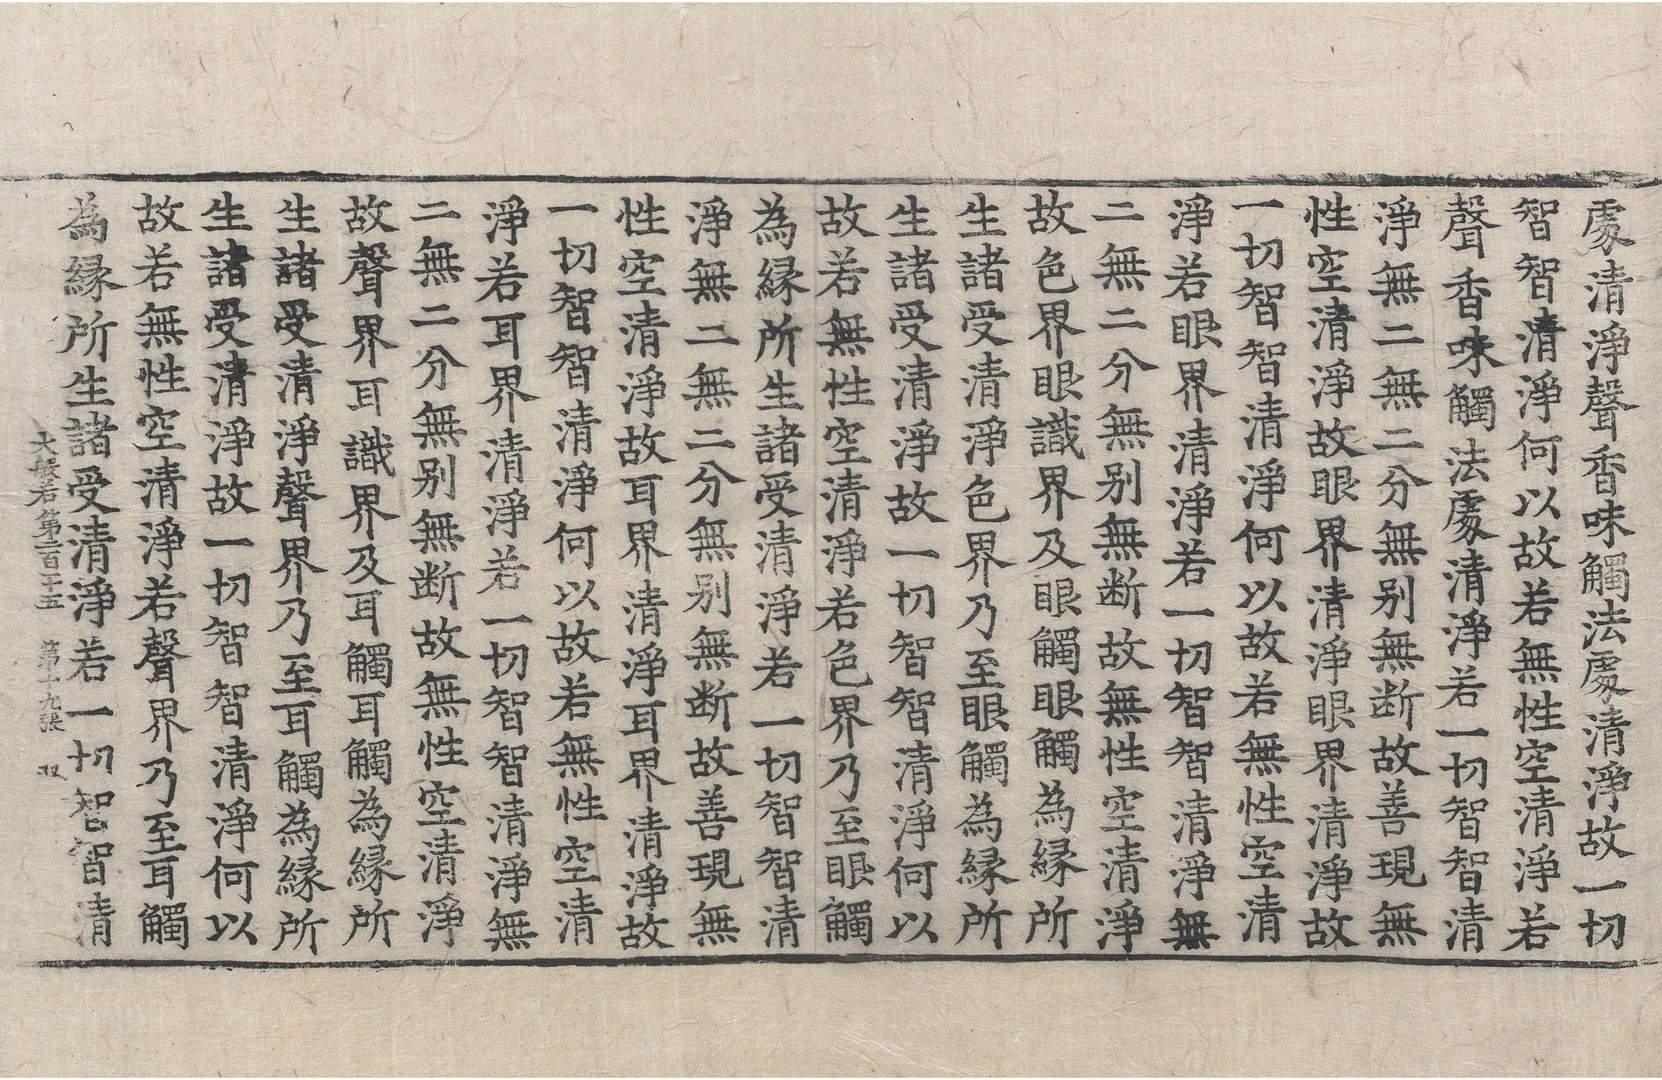 處清淨聲香味觸法處清淨故一切
智智清淨何以故若無性空清淨若
聲香味觸法處清淨若一切智智清
淨無二無二分無别無断故善現無
性空清淨故眼界清淨眼界清淨故
一切智智清淨何以故若無性空清
淨若眼界清淨若一切智智清淨無
二無二分無别無断故無性空清淨
故色界眼識界及眼觸眼觸為縁所
生諸受清淨色界乃至眼觸為縁所
生諸受清淨故一切智智清淨何以
故若無性空清淨若色界乃至眼觸
為縁所生諸受清淨若一切智智清
淨無二無二分無别無断故善現無
性空清淨故耳界清淨耳界清淨故
一切智智清淨何以故若無性空清
淨若耳界清淨若一切智智清淨無
二無二分無别無断故無性空清淨
故聲界耳識界及耳觸耳觸為縁所
生諸受清淨聲界乃至耳觸為縁所
生諸受清淨故一切智智清淨何以
故若無性空清淨若聲界乃至耳觸
為縁所生諸受清淨若一切智智清
大般若第二百十五 第十九張 双